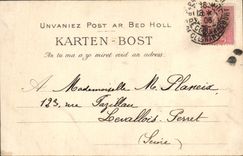 Unvaniez Post ar Bed Holl
KARTEN-BOST
An tu ma a zo miret evid an adress.
A Mademoiselle M. Planeix
123, rue Fazillau
Levallois-Perret
(Seine)